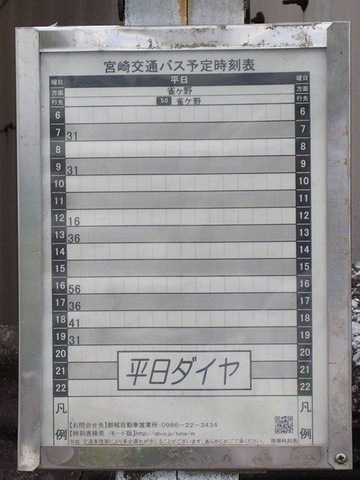 宮崎交通バス予定時刻表
曜日 平日 曜日
方面 雀ヶ野 方面
行先 50 雀ヶ野 行先
6 6
7 31 7
8 8
9 31 9
10 10
11 11
12 16 12
13 36 13
14 14
15 15
16 56 16
17 36 17
18 41 18
19 31 19
20 20
21 21
22 22
平日ダイヤ
凡例 凡例
【お問合せ先】都城自動車営業所 0986-22-3434
【時刻表検索 iモード版】http://qbus.jp/time/m
天候、交通事情等により多少遅れが生じることがございます。あらかじめご了承下さい。
携帯時刻表